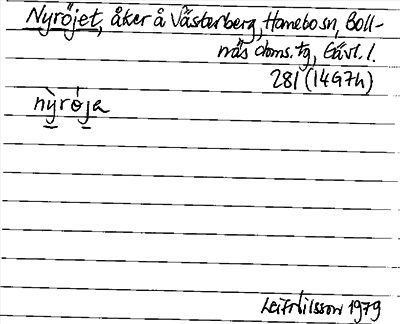 Nyröjet, åker å Västerberg, Hanebo sn, Boll-
näs doms. tg, Gävl. l.
281 (1497h)
nỳrø̀ja
Leif Nilsson 1979